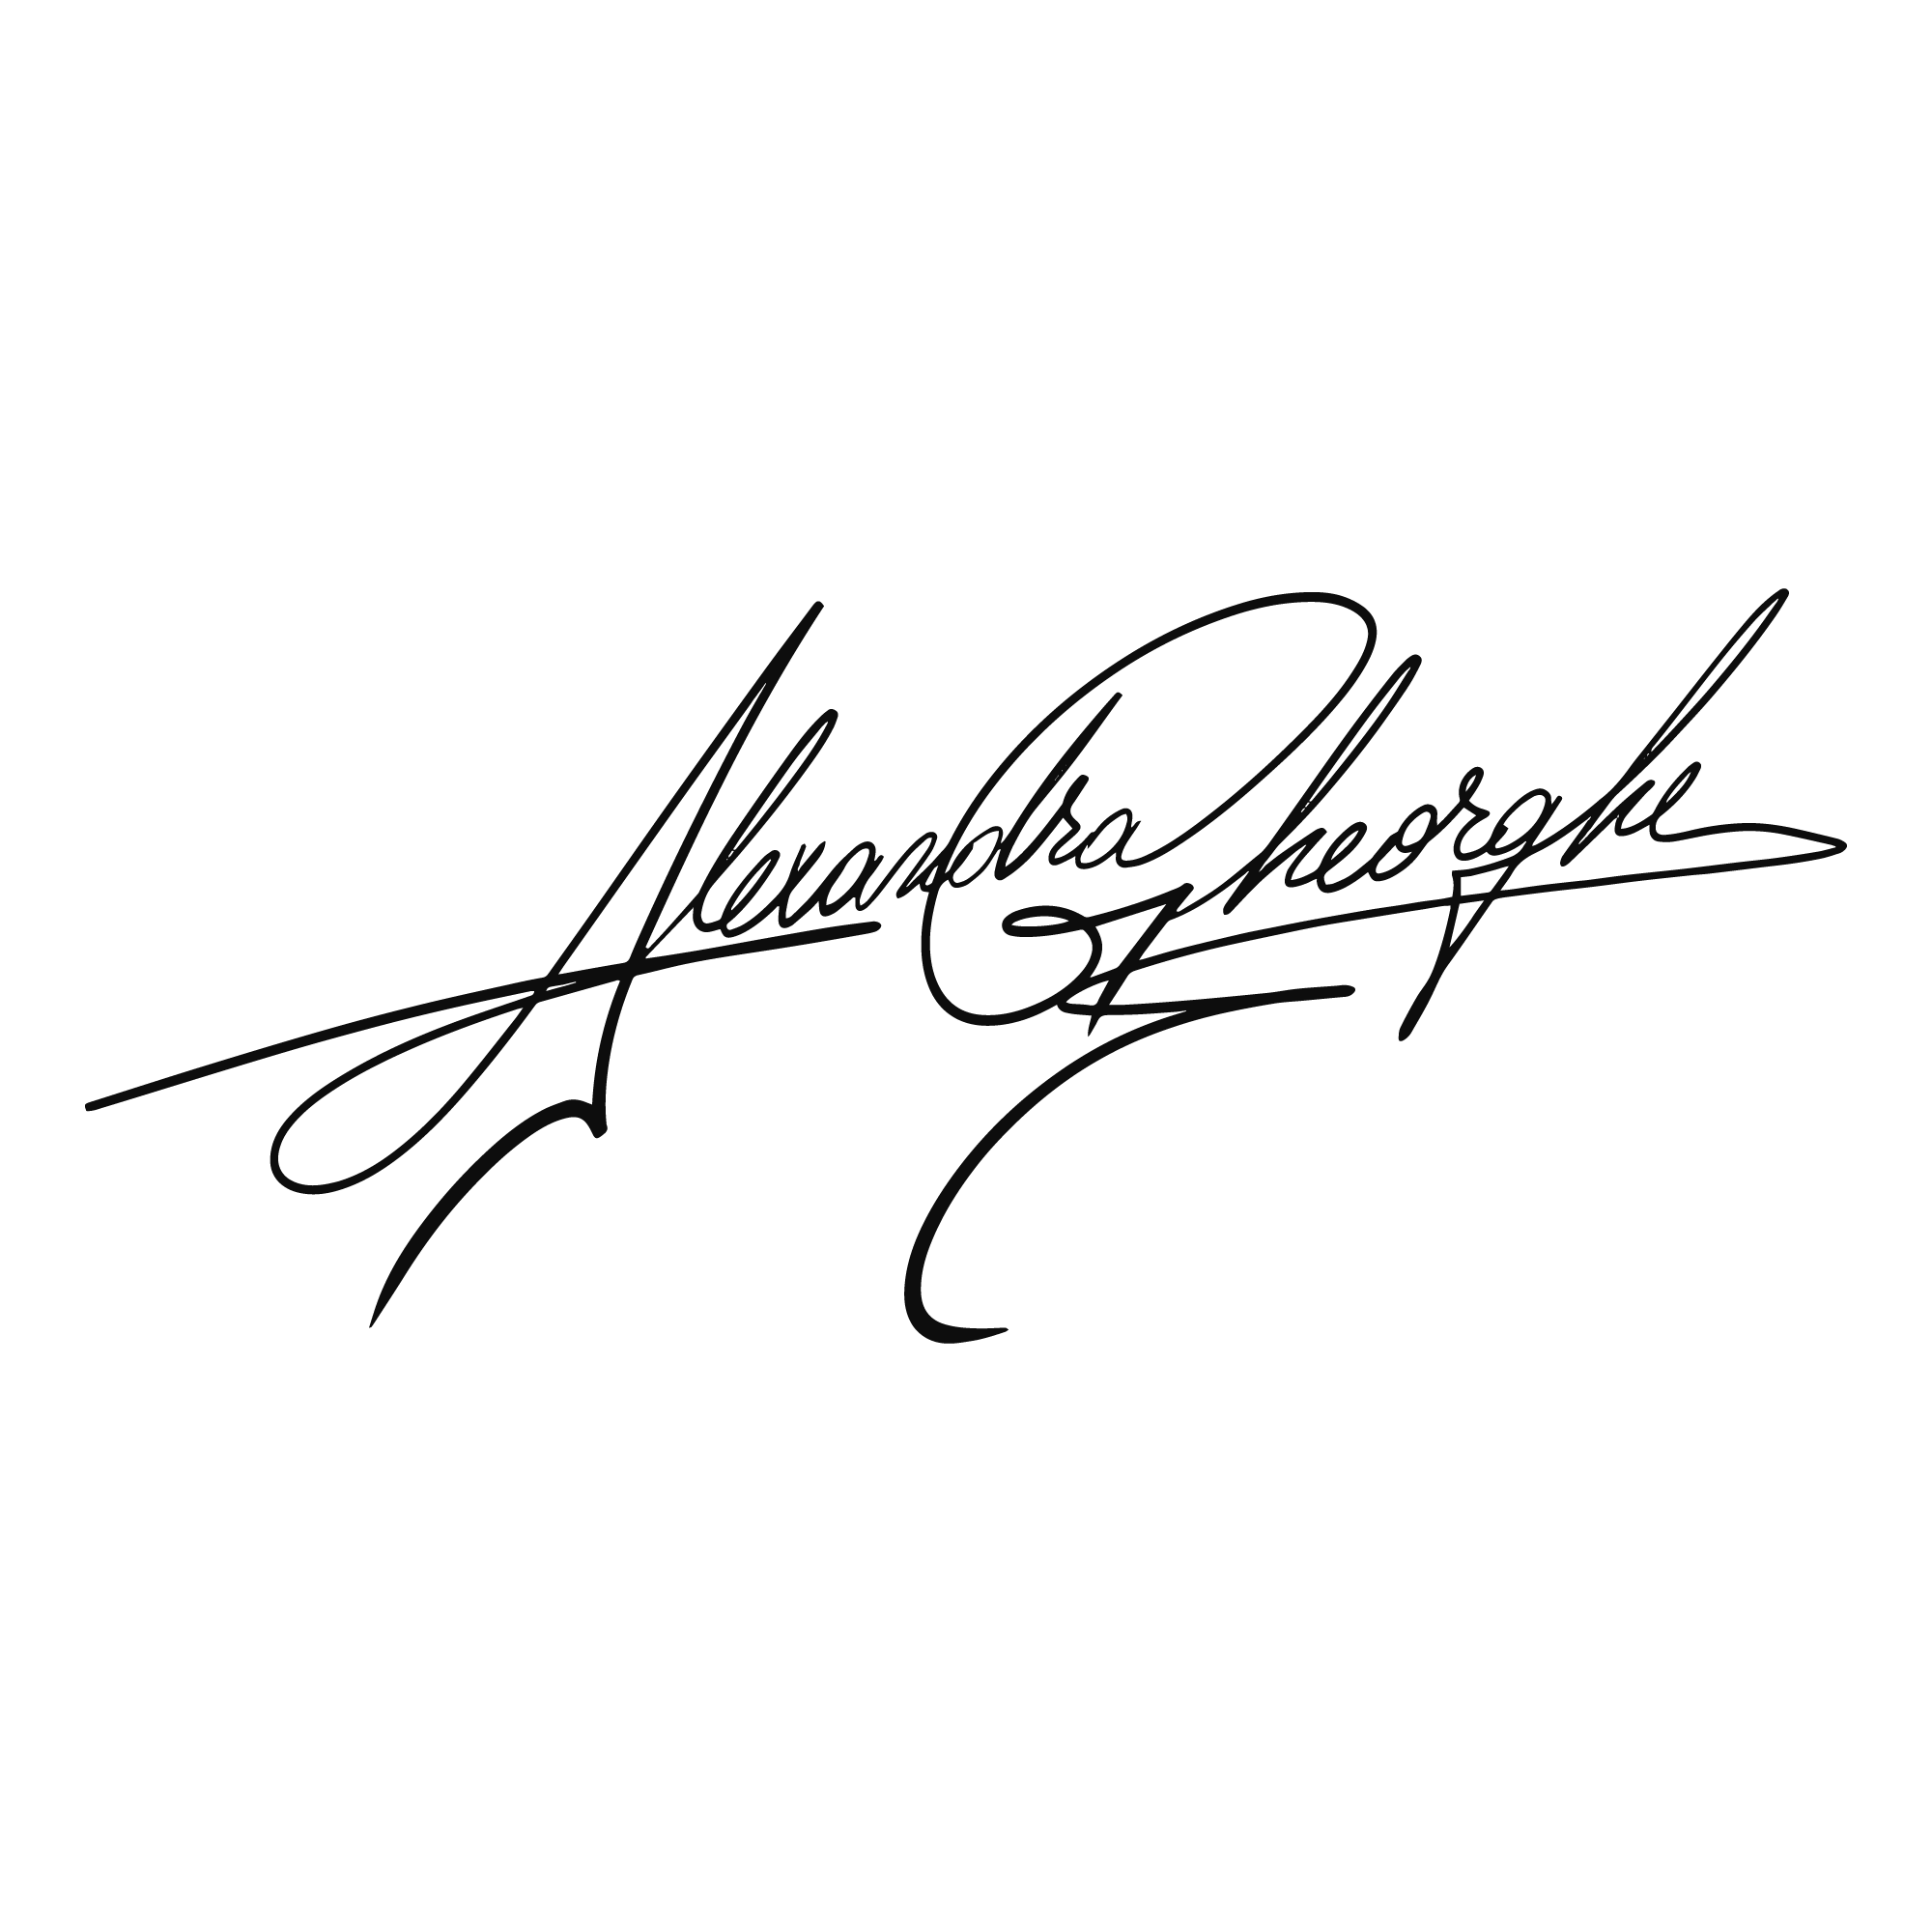 Alexandra Gheorghe